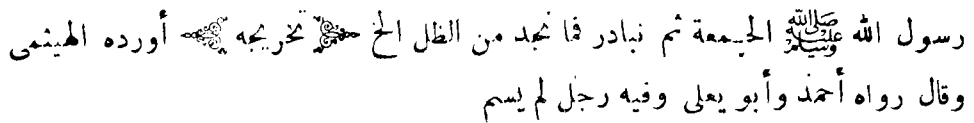 رسول الله ﷺ الجمعة ثم نبادر فما نجد من الظل الخ ﴿ تخريجه ﴾ أورده الهيثمى
وقال رواه أحمد وأبو يعلى وفيه رجل لم يسم